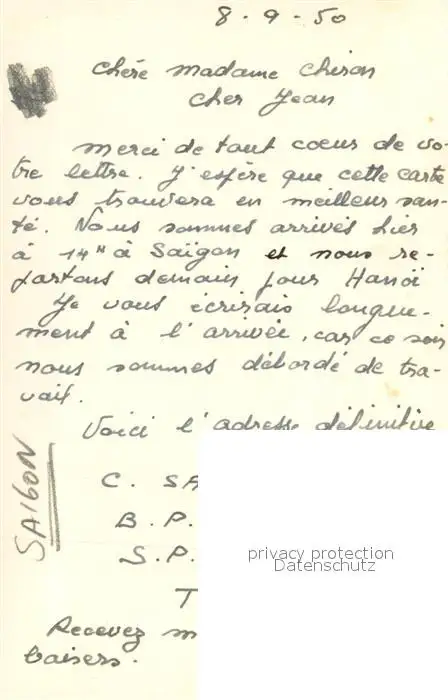 8-9-50
Chère Madame Chiron
Cher Jean
Merci de tout cœur de vo-
tre lettre. J'espère que cette carte
vous trouvera en meilleur san-
té. Nous sommes arrivés hier
à 14H à Saïgon et nous re-
partons demain pour Hanoï
Je vous écrirais longue-
ment à l'arrivée, car ce soir
nous sommes débordé de tra-
vail.
Voici l'adresse définitive
SAIGON
C. SA
B.P.
S.P.
T
privacy protection
Datenschutz
Recevez m
baisers.